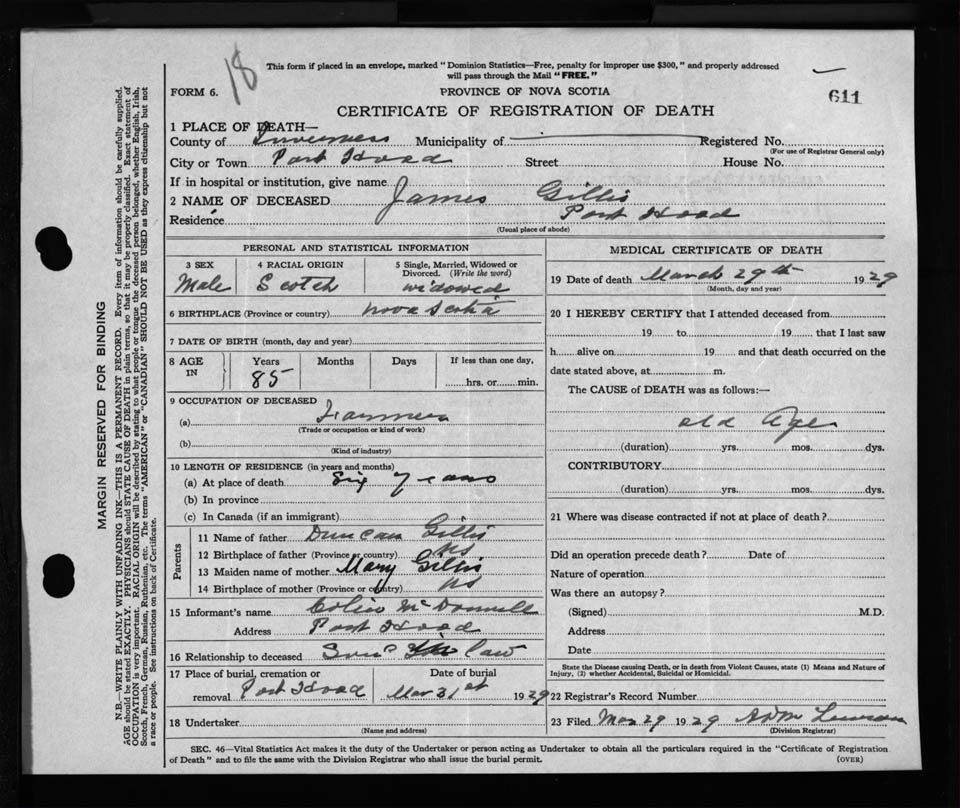 18
This form if placed in an envelope, marked "Dominion Statistics—Free, penalty for improper use $300," and properly addressed
will pass through the Mail "FREE."
FORM 6.
PROVINCE OF NOVA SCOTIA
611
CERTIFICATE OF REGISTRATION OF DEATH
1 PLACE OF DEATH—
County of Inverness Municipality of Registered No.
(For use of Registrar General only)
City or Town Port Hood Street House No.
If in hospital or institution, give name
2 NAME OF DECEASED James Gillis
Residence Port Hood
(Usual place of abode)
PERSONAL AND STATISTICAL INFORMATION
3 SEX 4 RACIAL ORIGIN 5 Single, Married, Widowed or
Divorced. (Write the word)
Male Scotch widowed
6 BIRTHPLACE (Province or country) Nova Scotia
7 DATE OF BIRTH (month, day and year)
8 AGE Years Months Days If less than one day,
IN 85 hrs. or min.
9 OCCUPATION OF DECEASED
(a) Farmer
(Trade or occupation or kind of work)
(b)
(Kind of industry)
10 LENGTH OF RESIDENCE (in years and months)
(a) At place of death Six years
(b) In province
(c) In Canada (if an immigrant)
Parents
11 Name of father Duncan Gillis
12 Birthplace of father (Province or country) NS
13 Maiden name of mother Mary Gillis
14 Birthplace of mother (Province or country) NS
15 Informant's name Colin McDonnell
Address Port Hood
16 Relationship to deceased Son in law
17 Place of burial, cremation or Date of burial
removal Port Hood Mar 31st 1929
18 Undertaker
(Name and address)
MEDICAL CERTIFICATE OF DEATH
19 Date of death March 29th 1929
(Month, day and year)
20 I HEREBY CERTIFY that I attended deceased from
19 to 19 that I last saw
h alive on 19 and that death occurred on the
date stated above, at m.
The CAUSE of DEATH was as follows:—
old Age
(duration) yrs. mos. dys.
CONTRIBUTORY
(duration) yrs. mos. dys.
21 Where was disease contracted if not at place of death?
Did an operation precede death? Date of
Nature of operation
Was there an autopsy?
(Signed) M.D.
Address
Date
State the Disease causing Death, or in death from Violent Causes, state (1) Means and Nature of
Injury, (2) whether Accidental, Suicidal or Homicidal.
22 Registrar's Record Number
23 Filed Mar 29 1929
(Division Registrar)
SEC. 46—Vital Statistics Act makes it the duty of the Undertaker or person acting as Undertaker to obtain all the particulars required in the "Certificate of Registration
of Death" and to file the same with the Division Registrar who shall issue the burial permit.
(OVER)
MARGIN RESERVED FOR BINDING
N.B.—WRITE PLAINLY WITH UNFADING INK—THIS IS A PERMANENT RECORD. Every item of information should be carefully supplied.
AGE should be stated EXACTLY. PHYSICIANS should STATE CAUSE OF DEATH in plain terms, so that it may be properly classified. Exact statement of
OCCUPATION is very important. RACIAL ORIGIN will be described by stating to what people or tongue the deceased person belonged, whether English, Irish,
Scotch, French, German, Russian, Ruthenian, etc. The terms "AMERICAN" or "CANADIAN" SHOULD NOT BE USED as they express citizenship but not
a race or people. See instructions on back of Certificate.